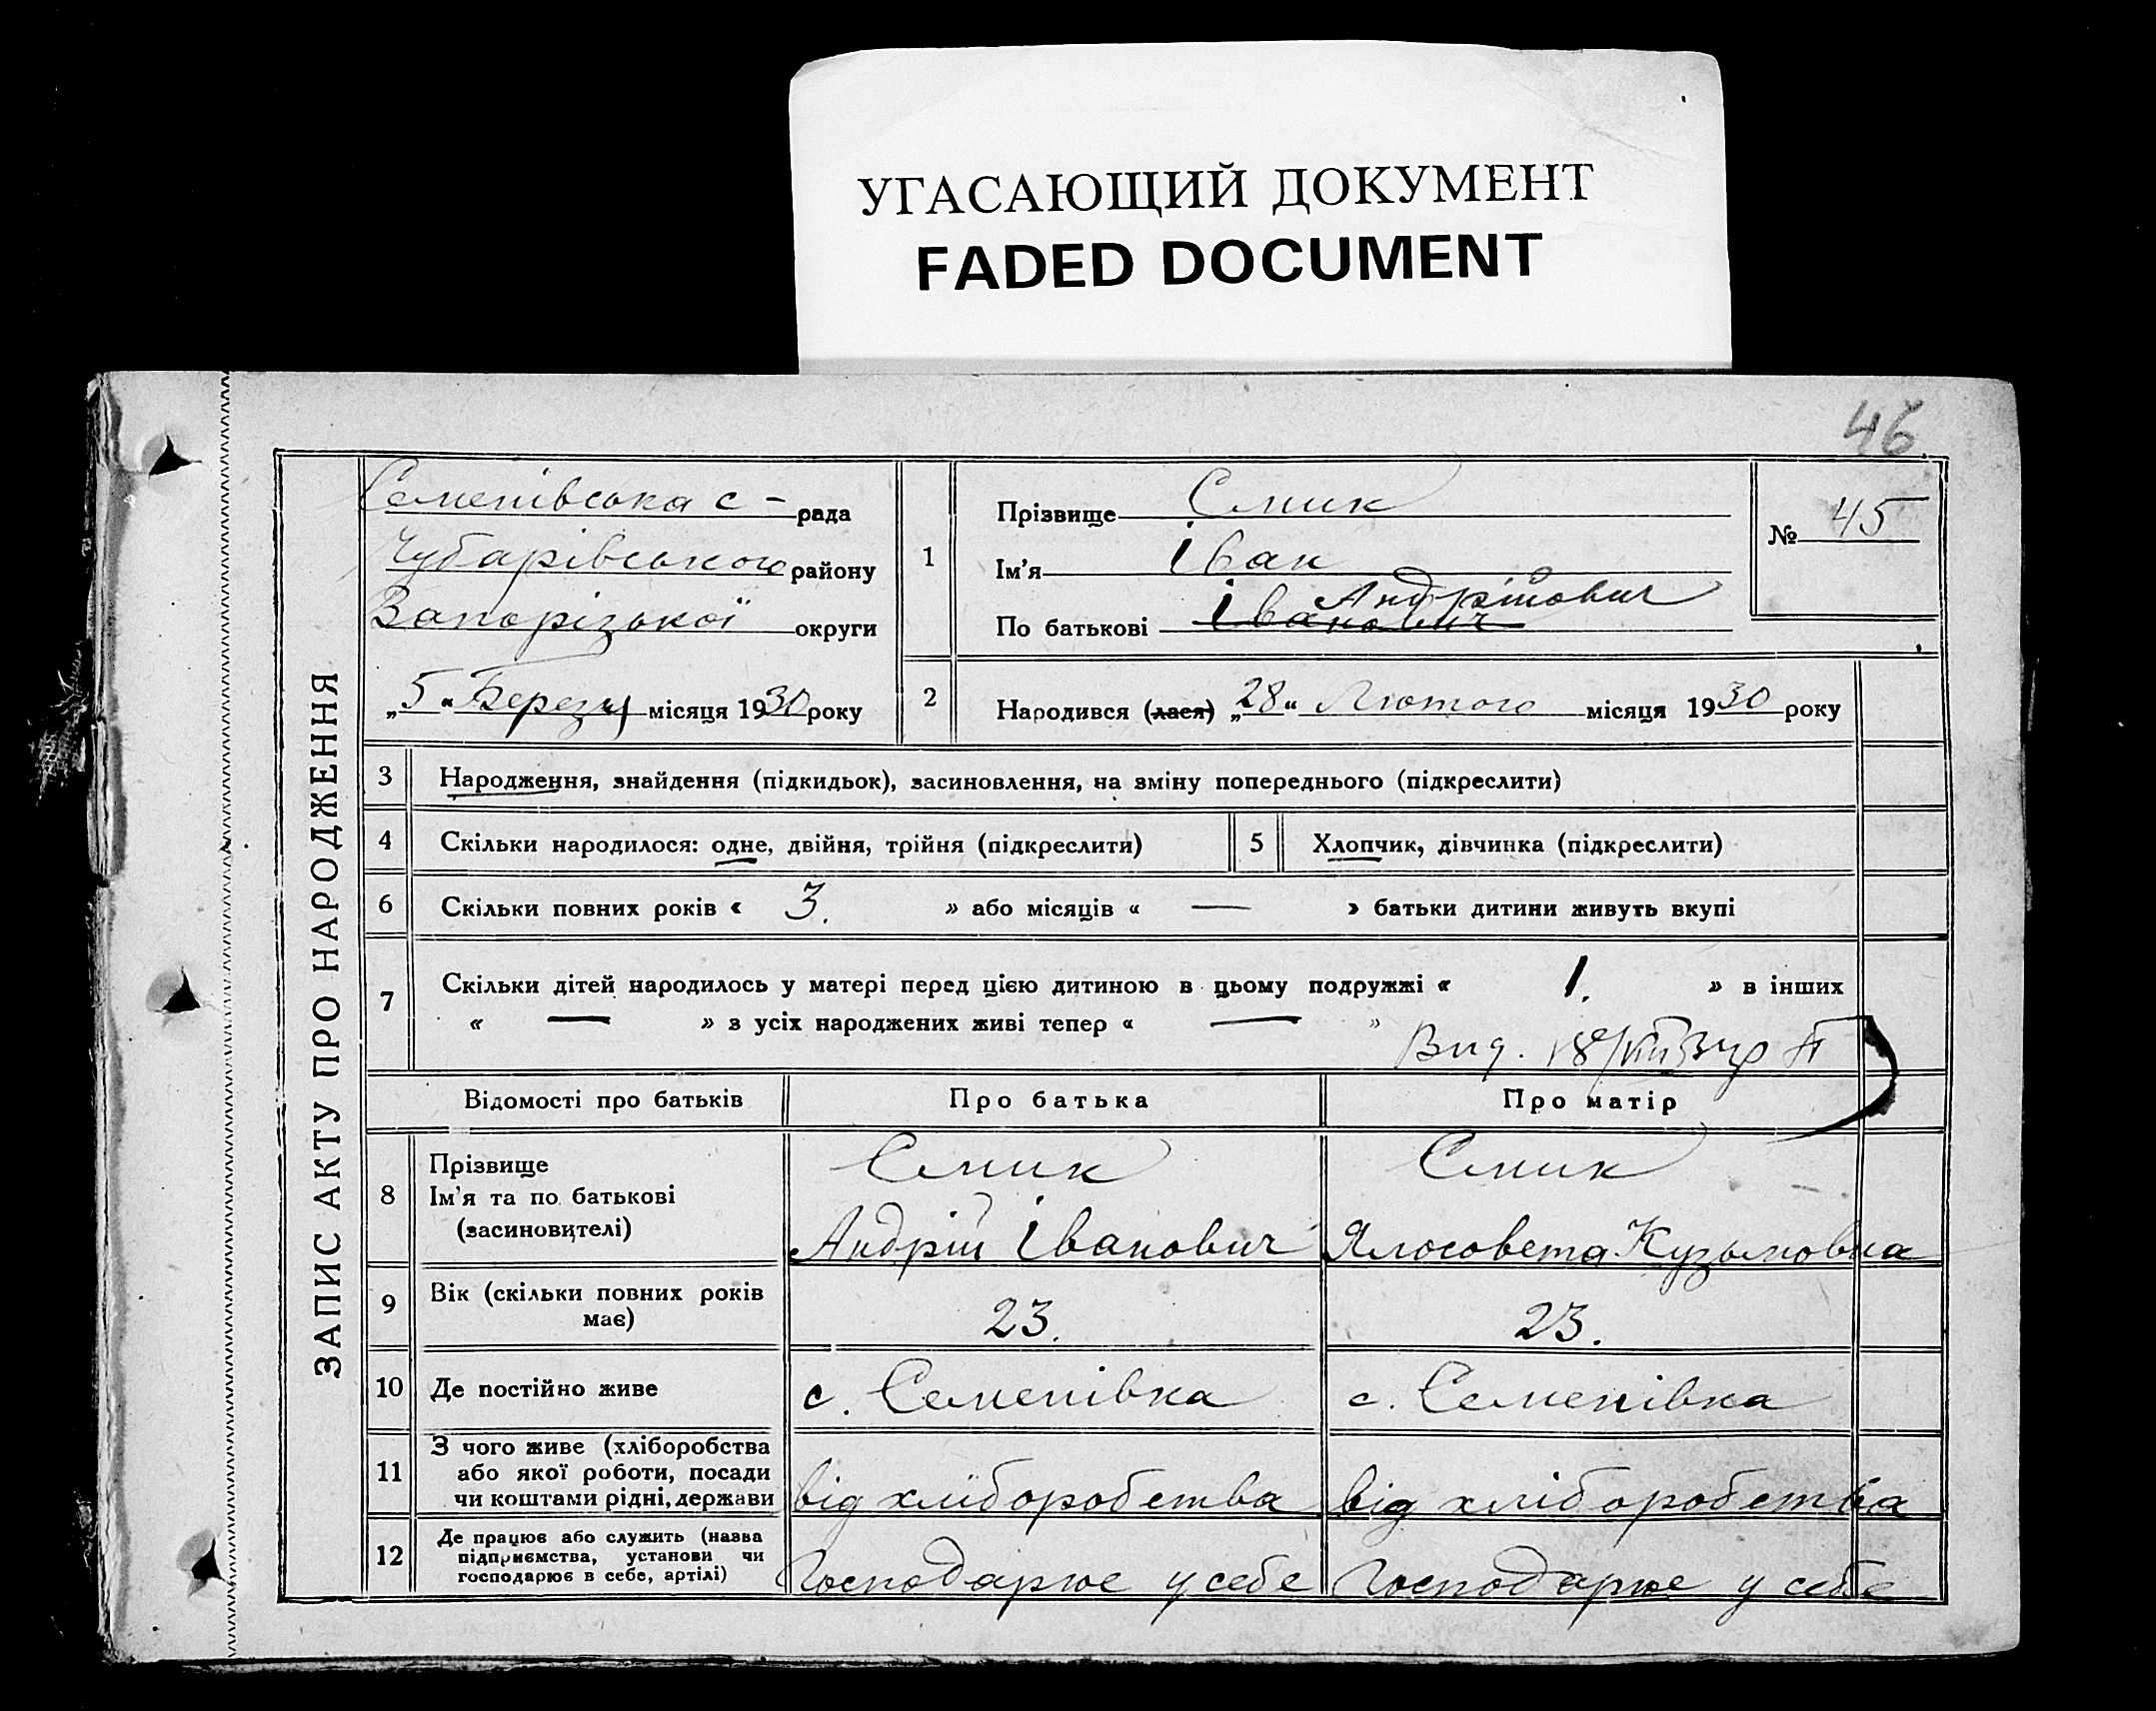 УГАСАЮЩИЙ ДОКУМЕНТ
FADED DOCUMENT
46
ЗАПИС АКТУ ПРО НАРОДЖЕННЯ
Семенівська с - рада
Чубарівського району
Запорізької округи
„5“ Березня місяця 1930 року
1
Прізвище Смик
Ім'я Іван
Андрійович
По батькові Іванович
№ 45
2
Народився (лася) „28“ Лютого місяця 1930 року
3 Народження, знайдення (підкидьок), засиновлення, на зміну попереднього (підкреслити)
4 Скільки народилося: одне, двійня, трійня (підкреслити) 5 Хлопчик, дівчинка (підкреслити)
6 Скільки повних років « 3. » або місяців « — » батьки дитини живуть вкупі
7 Скільки дітей народилось у матері перед цією дитиною в цьому подружжі « 1. » в інших
« — » з усіх народжених живі тепер « — »
Вид.
Відомості про батьків Про батька Про матір
8 Прізвище
Ім'я та по батькові
(засиновителі)
Смик
Андрій Іванович
Смик
Ялосовета Кузьмовна
9 Вік (скільки повних років
має)
23.
23.
10 Де постійно живе с. Семенівка с. Семенівка
11 З чого живе (хліборобства
або якої роботи, посади
чи коштами рідні, держави
від хліборобства
від хліборобства
12 Де працює або служить (назва
підприємства, установи чи
господарює в себе, артілі)
Господарює у себе
Господарює у себе